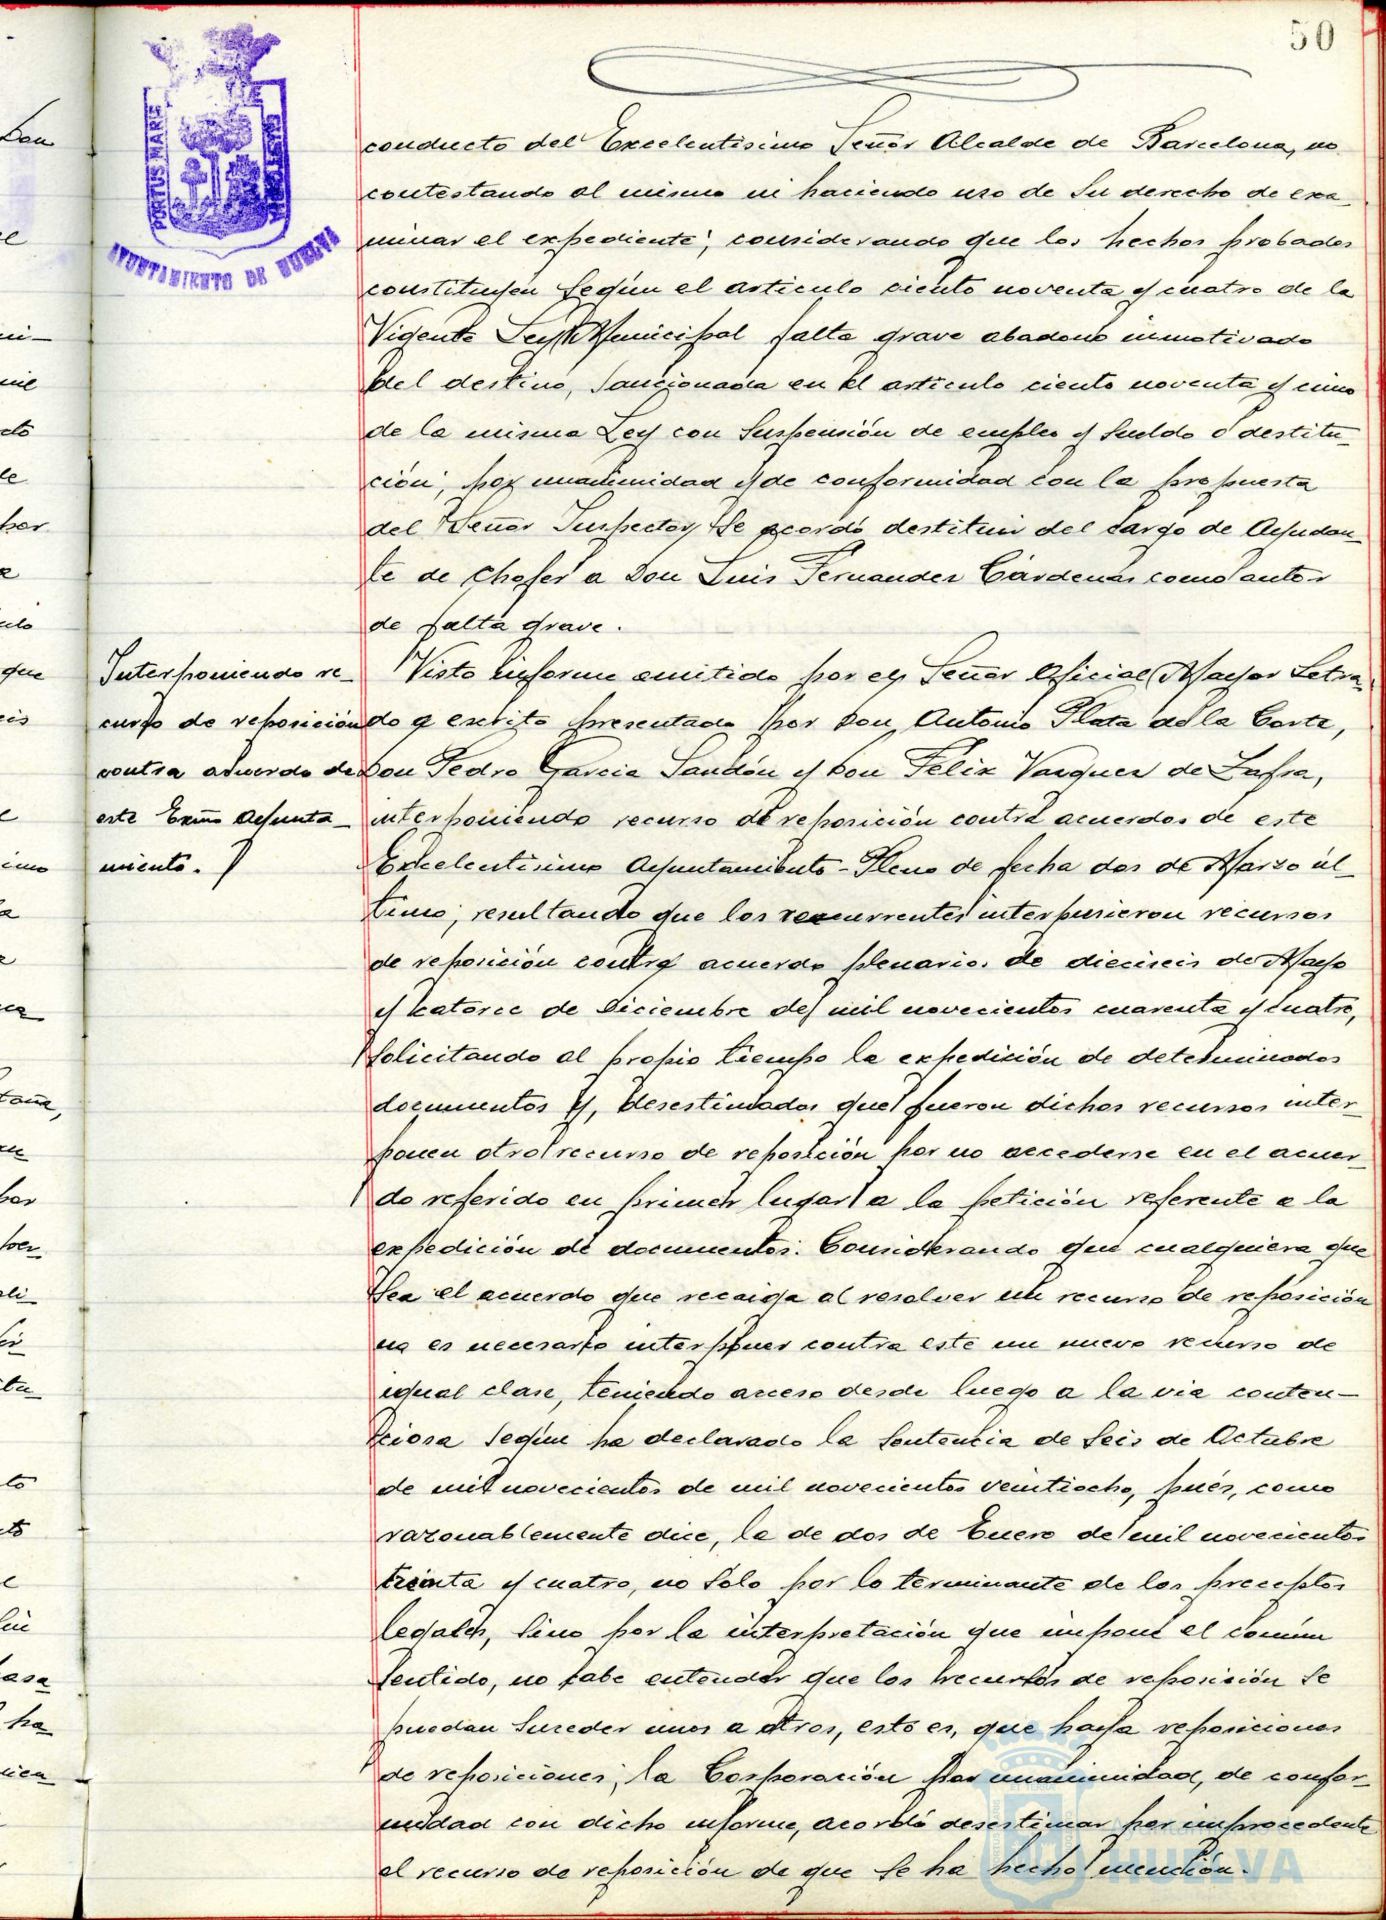 50
PORTUS MARIS
AYUNTAMIENTO DE HUELVA
conducto del Excelentísimo Señor Alcalde de Barcelona, no
contestando al mismo ni haciendo uso de su derecho de exa-
minar el expediente; considerando que los hechos probados
constituyen según el artículo ciento noventa y cuatro de la
Vigente Ley Municipal falta grave abadono inmotivado
del destino, sancionada en el artículo ciento noventa y cinco
de la misma Ley con suspensión de empleo y sueldo o destitu-
ción; por unanimidad y de conformidad con la propuesta
del Señor Inspector, se acordó destituir del cargo de Ayudan-
te de Chofer a Don Luis Fernandez Cárdenas como autor
de falta grave.
Interponiendo re-
curso de reposición
contra acuerdo de
este Exmo Ayunta-
miento.
Visto informe emitido por el Señor Oficial Mayor Letra-
do y escrito presentado por Don Antonio Plata de la Corte,
Don Pedro Garcia Sandón y Don Felix Vazquez de Zafra,
interponiendo recurso de reposición contra acuerdos de este
Excelentísimo Ayuntamiento-Pleno de fecha dos de Marzo úl-
timo; resultando que los recurrentes interpusieron recursos
de reposición contra acuerdo plenario. de dieciseis de Mayo
y catorce de Diciembre de mil novecientos cuarenta y cuatro,
solicitando al propio tiempo la expedición de determinados
documentos y, desestimados que fueron dichos recursos inter-
ponen otro recurso de reposición por no accederse en el acuer-
do referido en primer lugar a la petición referente a la
expedición de documentos: Considerando que cualquiera que
sea el acuerdo que recaiga al resolver un recurso de reposición
no es necesario interponer contra este un nuevo recurso de
igual clase, teniendo acceso desde luego a la via conten-
ciosa según ha declarado la Sentencia de seis de Octubre
de mil novecientos de mil novecientos veintiocho, pués, como
razonablemente dice, la de dos de Enero de mil novecientos
treinta y cuatro, no sólo por lo terminante de los preceptos
legales, sino por la interpretación que impone el común
sentido, no cabe entender que los recursos de reposición se
puedan suceder unos a otros, esto es, que haya reposiciones
de reposiciones; la Corporación por unanimidad, de confor-
midad con dicho informe, acordó desestimar por improcedente
el recurso de reposición de que se ha hecho mención.
Ayuntamiento de
HUELVA